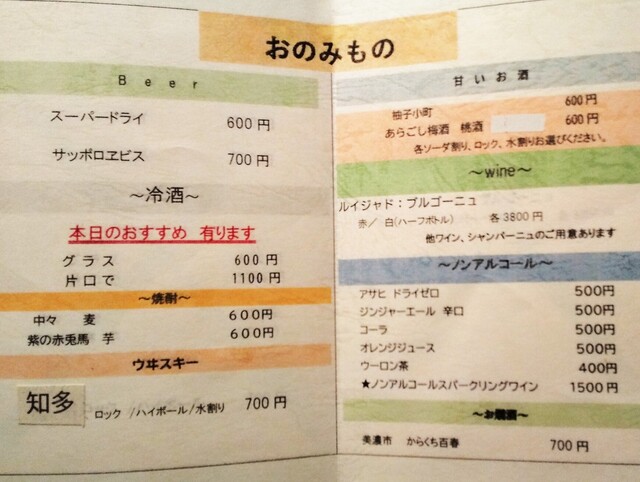 おのみもの
Beer
スーパードライ 600円
サッポロヱビス 700円
～冷酒～
本日のおすすめ 有ります
グラス 600円
片口で 1100円
～焼酎～
中々 麦 600円
紫の赤兎馬 芋 600円
ウヰスキー
知多 ロック /ハイボール/水割り 700円
甘いお酒
柚子小町 600円
あらごし梅酒 桃酒 600円
各ソーダ割り、ロック、水割りお選びください。
～wine～
ルイジャド：ブルゴーニュ
赤／ 白(ハーフボトル) 各3800円
他ワイン、シャンパーニュのご用意あります
～ノンアルコール～
アサヒ ドライゼロ 500円
ジンジャーエール 辛口 500円
コーラ 500円
オレンジジュース 500円
ウーロン茶 400円
★ノンアルコールスパークリングワイン 1500円
～お燗酒～
美濃市 からくち百春 700円